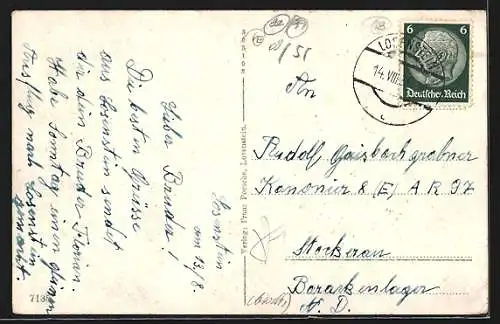 Losenstein
am 13/8
Lieber Bruder!
Die besten Grüsse
aus Losenstein sendet
dir dein Bruder Florian.
Habe Sonntag einen kleinen
Ausflug nach Losenstein
gemacht
7138
Verlag: Franz Porsche, Losenstein.
8/51
LOSENSTEIN
14. VIII.
6 6
Deutsches Reich
An
Rudolf Gaisbachgrabner
Kanonier 8 (E) A R 97
Stockerau
Barackenlager
N. D.